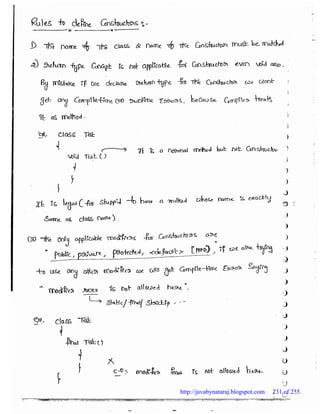 Rules to define Constructors :-
1). The name of the class & name of the Constructor must be matched
2) Return type Concept is not applicable for Constructors even void also.
By mistake if we declare return type for the Constructor we won't
get any Compile-time (or) runtime Errors, because Compiler treats
it as method.
Ex. class Test
{
void Test()
{
}
}
It is a normal method but not Constructor
It is legal (for stupid) to have a method whose name is exactly
Same as class name.
(3) The only applicable modifiers for Constructors are
public, private, protected, <default>. if we are trying
to use any other modifiers we will get Compile-time Error Saying
" modifier xxxx is not allowed here".
static/final/strictfp . - -
Ex. class Test
{
final Test()
{
}
}
C.E: modifier final is not allowed here.
http://javabynataraj.blogspot.com 231 of 255.